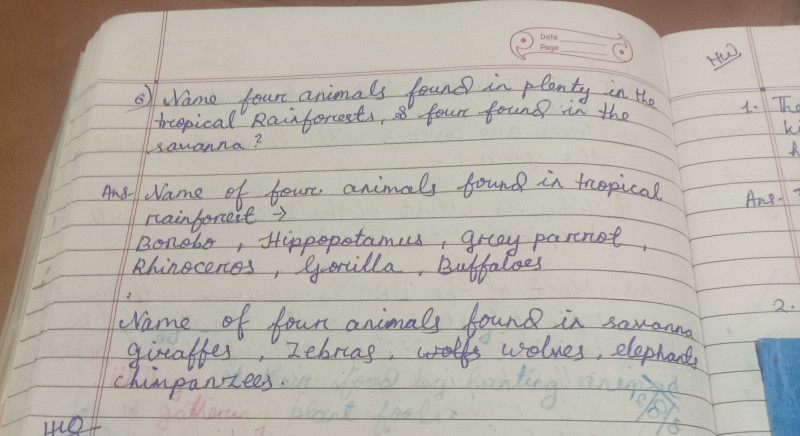 Date
Page
6) Name four animals found in plenty in the
tropical Rainforests, & four found in the
savanna?
Ans- Name of four animals found in tropical
rainforest →
Bonobo, Hippopotamus, grey parrot,
Rhinoceros, Gorilla, Buffaloes
Name of four animals found in savanna
giraffes, Zebras, wolfs wolves, elephants
chimpanzees.
HW
HW
1. The
Ans-
2.